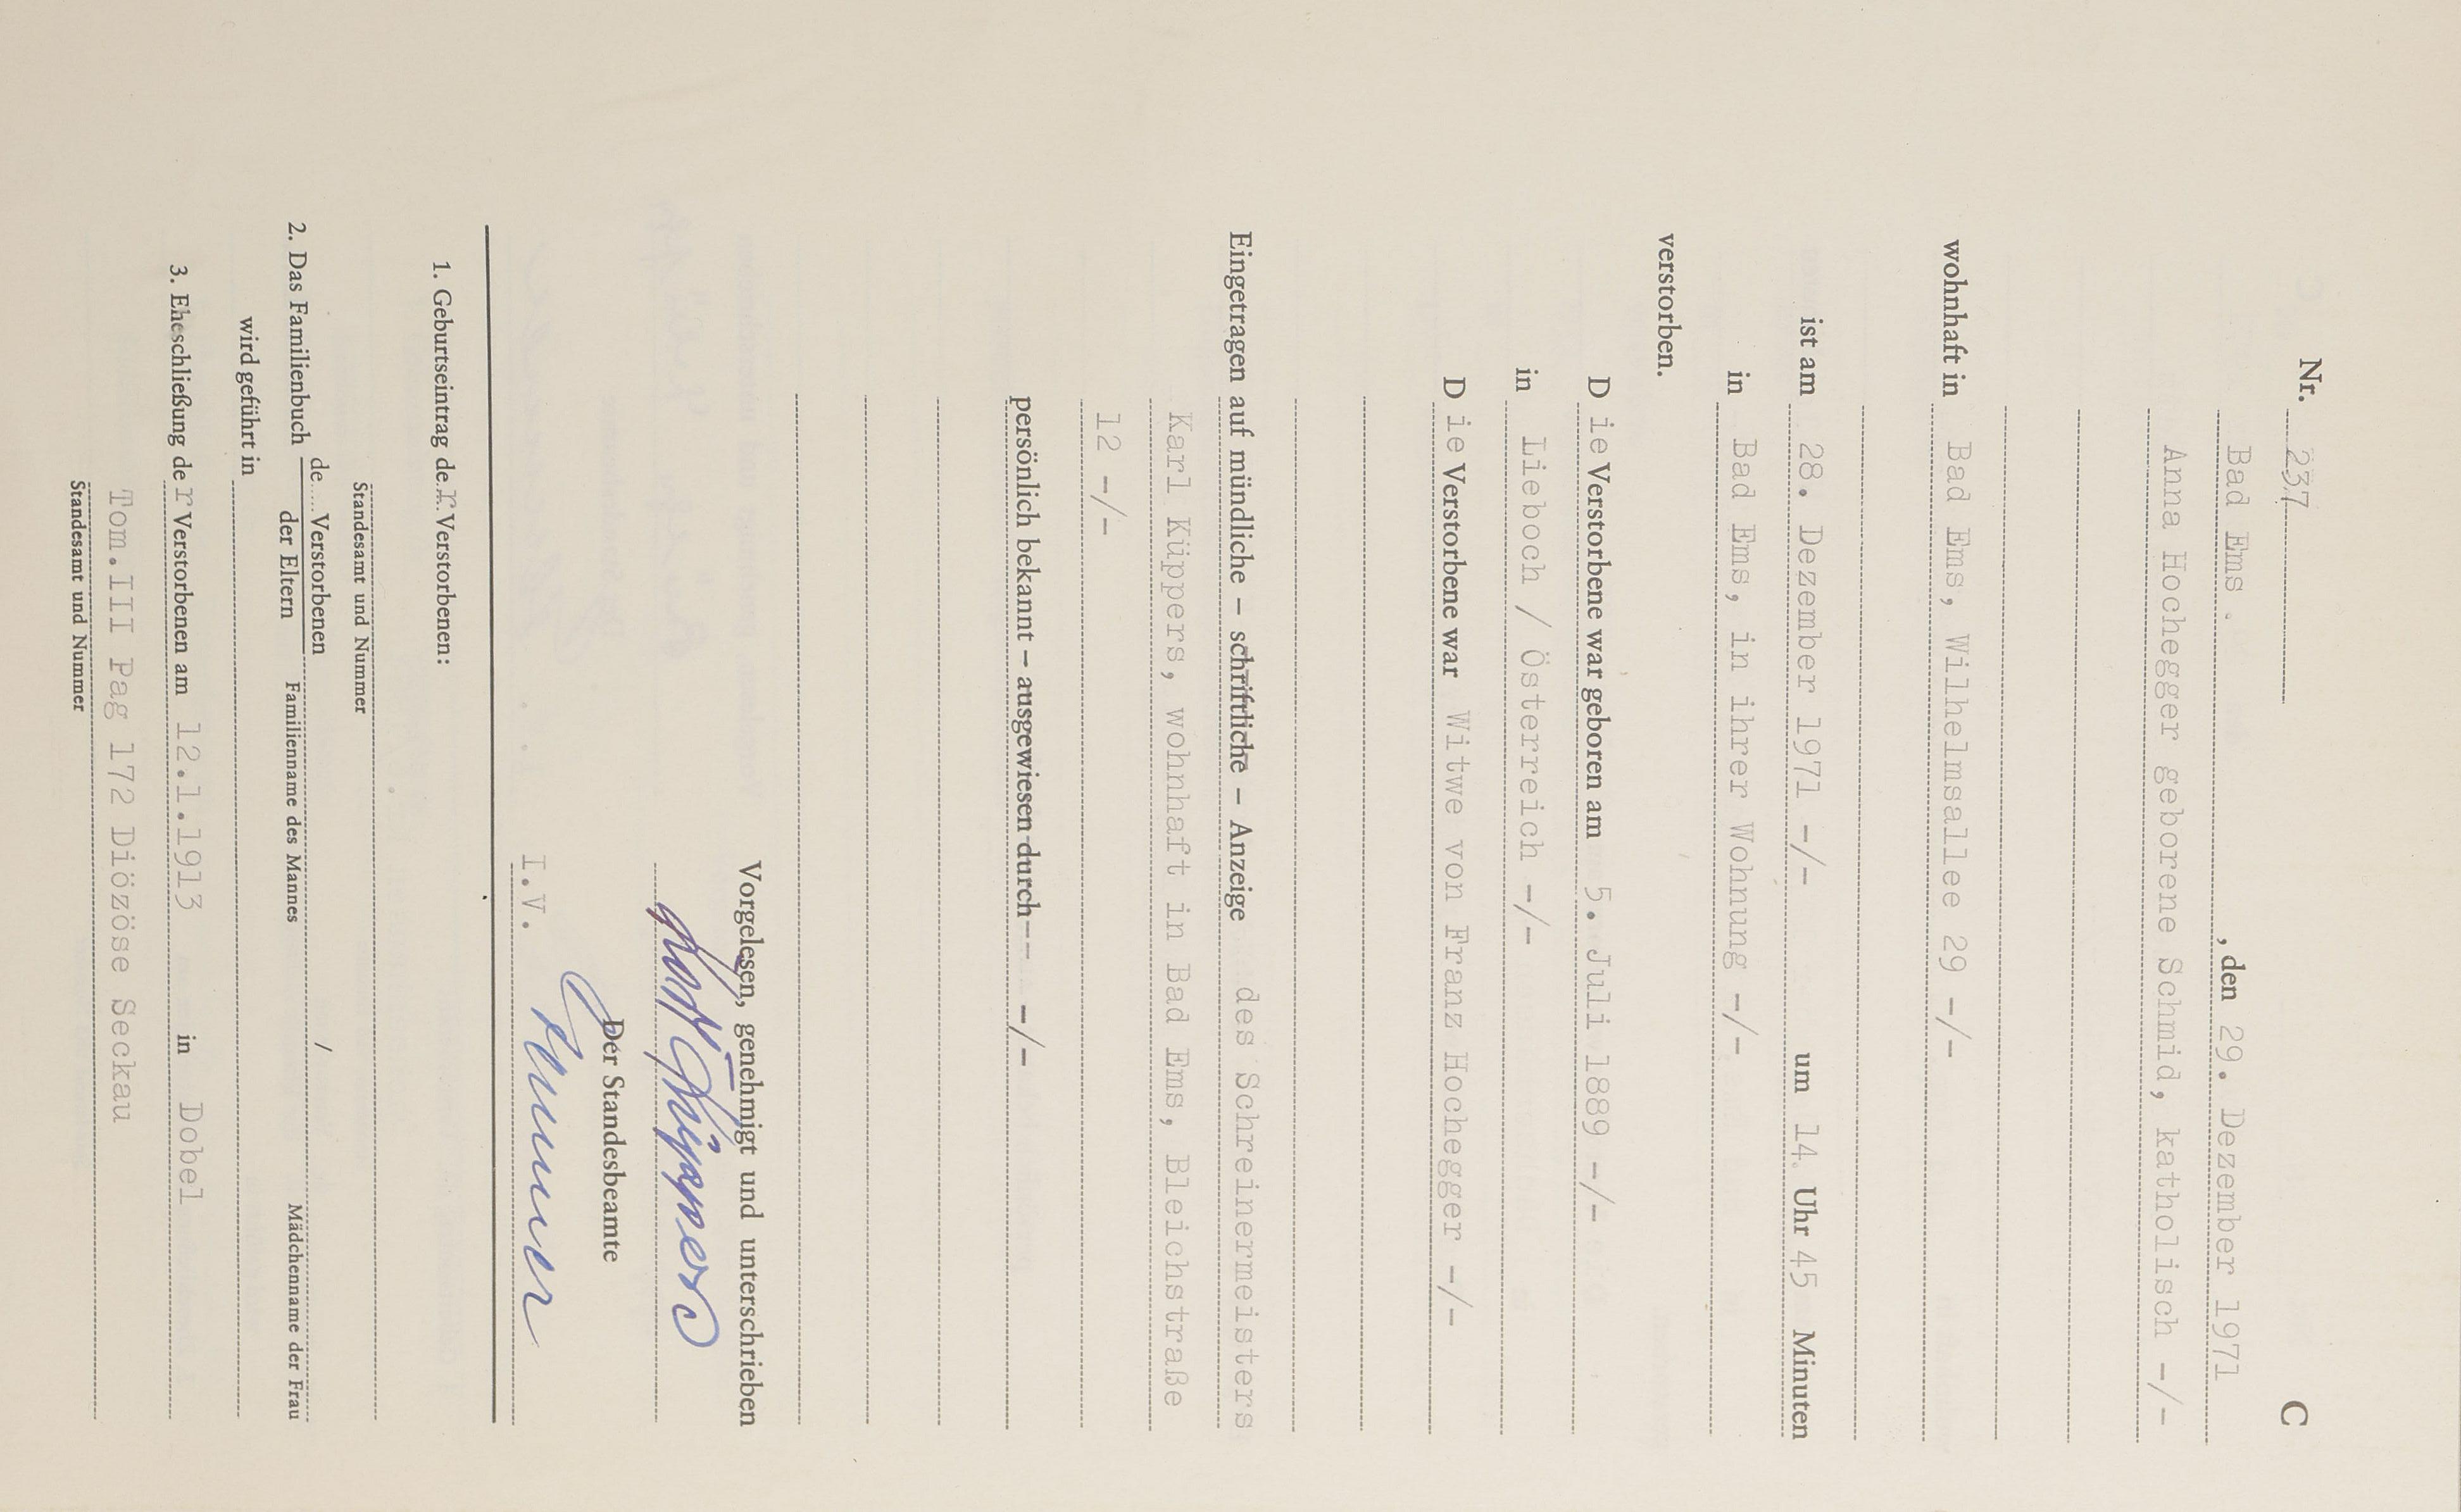 Nr. 237 C
Bad Ems , den 29. Dezember 1971
Anna Hochegger geborene Schmid, katholisch -/-
wohnhaft in Bad Ems, Wilhelmsallee 29 -/-
ist am 28. Dezember 1971 -/- um 14 Uhr 45 Minuten
in Bad Ems, in ihrer Wohnung -/-
verstorben.
D ie Verstorbene war geboren am 5. Juli 1889 -/-
in Lieboch / Österreich -/-
D ie Verstorbene war Witwe von Franz Hochegger -/-
Eingetragen auf mündliche – schriftliche – Anzeige des Schreinermeisters
Karl Küppers, wohnhaft in Bad Ems, Bleichstraße
12 -/-
persönlich bekannt – ausgewiesen durch -- -/-
Vorgelesen, genehmigt und unterschrieben
Küppers
Der Standesbeamte
I.V.
1. Geburtseintrag der Verstorbenen:
Standesamt und Nummer
2. Das Familienbuch de Verstorbenen /
der Eltern Familienname des Mannes Mädchenname der Frau
wird geführt in
3. Eheschließung der Verstorbenen am 12.1.1913 in Dobel
Tom.III Pag 172 Diözöse Seckau
Standesamt und Nummer